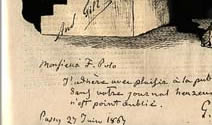 And Gill
Monsieur F. Polo
J'adhère avec plaisir à la pub
dans votre journal
n'est point oublié.
G.
Passy 27 Juin 1867